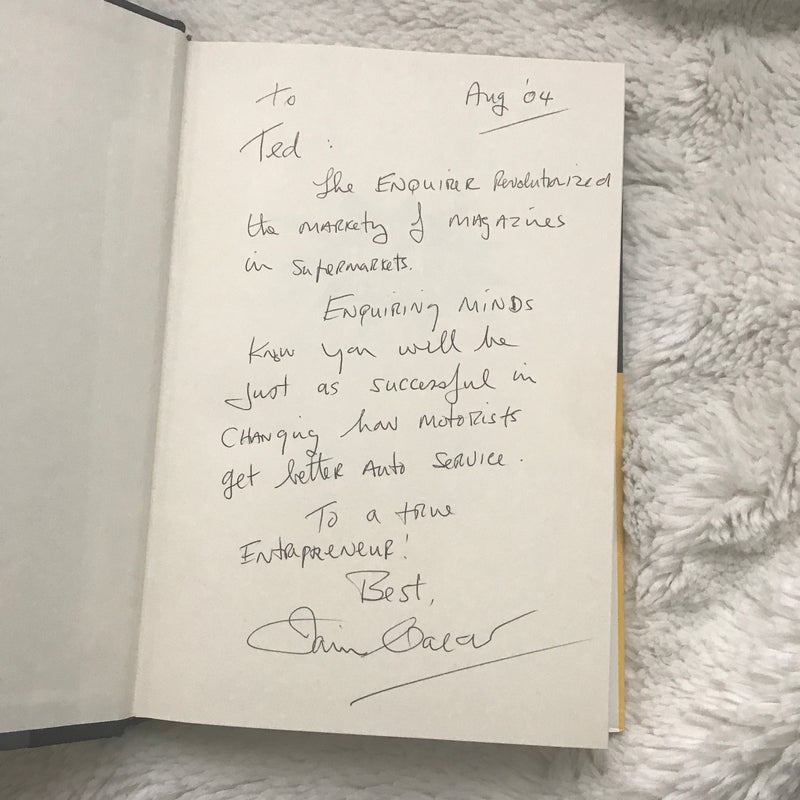 To Aug '04
Ted :
The ENQUIRER Revolutionized
the MARKETg of MAGAZINES
in Supermarkets.
ENQUIRING MINDS
Know you will be
Just as successful in
CHANGing how MOTORISTS
get better Auto Service.
To a true
ENTRAPRENEUR!
Best,
Iain Calder